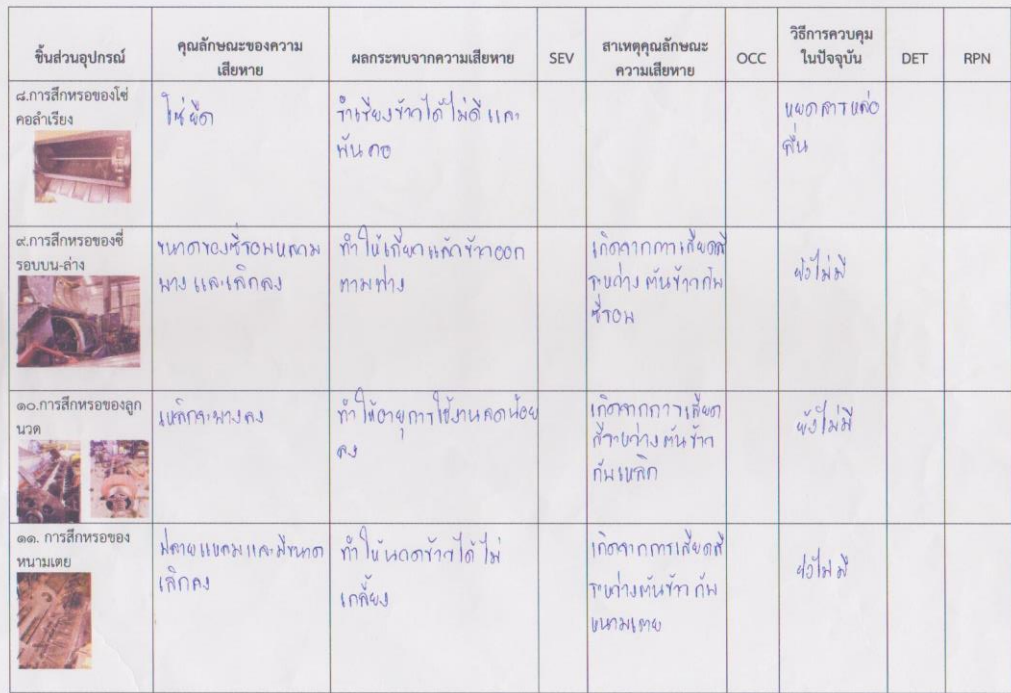 ชิ้นส่วนอุปกรณ์
คุณลักษณะของความ
เสียหาย
ผลกระทบจากความเสียหาย
SEV
สาเหตุคุณลักษณะ
ความเสียหาย
OCC
วิธีการควบคุม
ในปัจจุบัน
DET
RPN
๘.การสึกหรอของโซ่
คอลำเรียง
โซ่ยืด
ลำเรียงข้าวได้ไม่ดี และ
พันคอ
หยอดสารหล่อ
ลื่น
๙.การสึกหรอของซี่
รอบบน-ล่าง
ขนาดของซี่รอบ
บาง และเล็กลง
ทำให้เกี่ยวแล้วข้าวออก
ตามฟาง
เกิดจากการเสียดสี
ระหว่างต้นข้าวกับ
ซี่รอบ
ยังไม่มี
๑๐.การสึกหรอของลูก
นวด
เหล็กจะบางลง
ทำให้อายุการใช้งานลดน้อย
ลง
เกิดจากการเสียด
สีระหว่างต้นข้าว
กับเหล็ก
ยังไม่มี
๑๑. การสึกหรอของ
หนามเตย
ปลายแหลมและมีขนาด
เล็กลง
ทำให้นวดข้าวได้ไม่
เกลี้ยง
เกิดจากการเสียดสี
ระหว่างต้นข้าวกับ
หนามเตย
ยังไม่มี